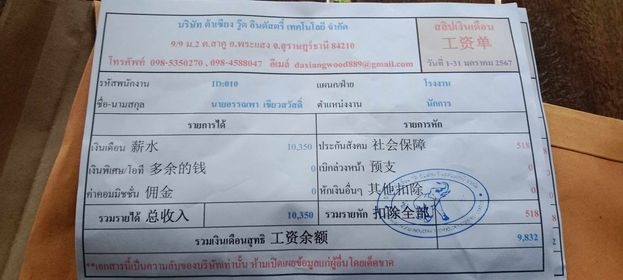 บริษัท ต้าเซียง วู๊ด อินดัสตรี้ เทคโนโลยี จำกัด
9/9 ม.2 ต.สาคู อ.พระแสง จ.สุราษฎร์ธานี 84210
โทรศัพท์ 098-5350270 , 098-4588047 อีเมล์ daxiangwood889@gmail.com
สลิปเงินเดือน
工资单
วันที่ 1-31 มกราคม 2567
รหัสพนักงาน ID:010 แผนก/ฝ่าย โรงงาน
ชื่อ-นามสกุล นายอรรณพา เขียวสวัสดิ์ ตำแหน่งงาน นักการ
รายการได้ รายการหัก
เงินเดือน 薪水 10,350 ประกันสังคม 社会保障 518
เงินพิเศษ/โอที 多余的钱 0 เบิกล่วงหน้า 预支 0
ค่าคอมมิชชั่น 佣金 0 หักเงินอื่นๆ 其他扣除 0
รวมรายได้ 总收入 10,350 รวมรายหัก 扣除全部 518
รวมเงินเดือนสุทธิ 工资余额 9,832
**เอกสารนี้เป็นความลับของบริษัทเท่านั้น ห้ามเปิดเผยข้อมูลแก่ผู้อื่น โดยเด็ดขาด